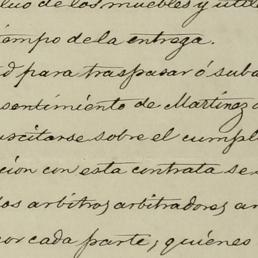 de los muebles y util
tiempo de la entrega.
d para traspasar ó suba
sentimiento de Martinez
uscitarse sobre el cumpl
ción con esta contrata se
los arbitros arbitradores, am
or cada parte; quiénes